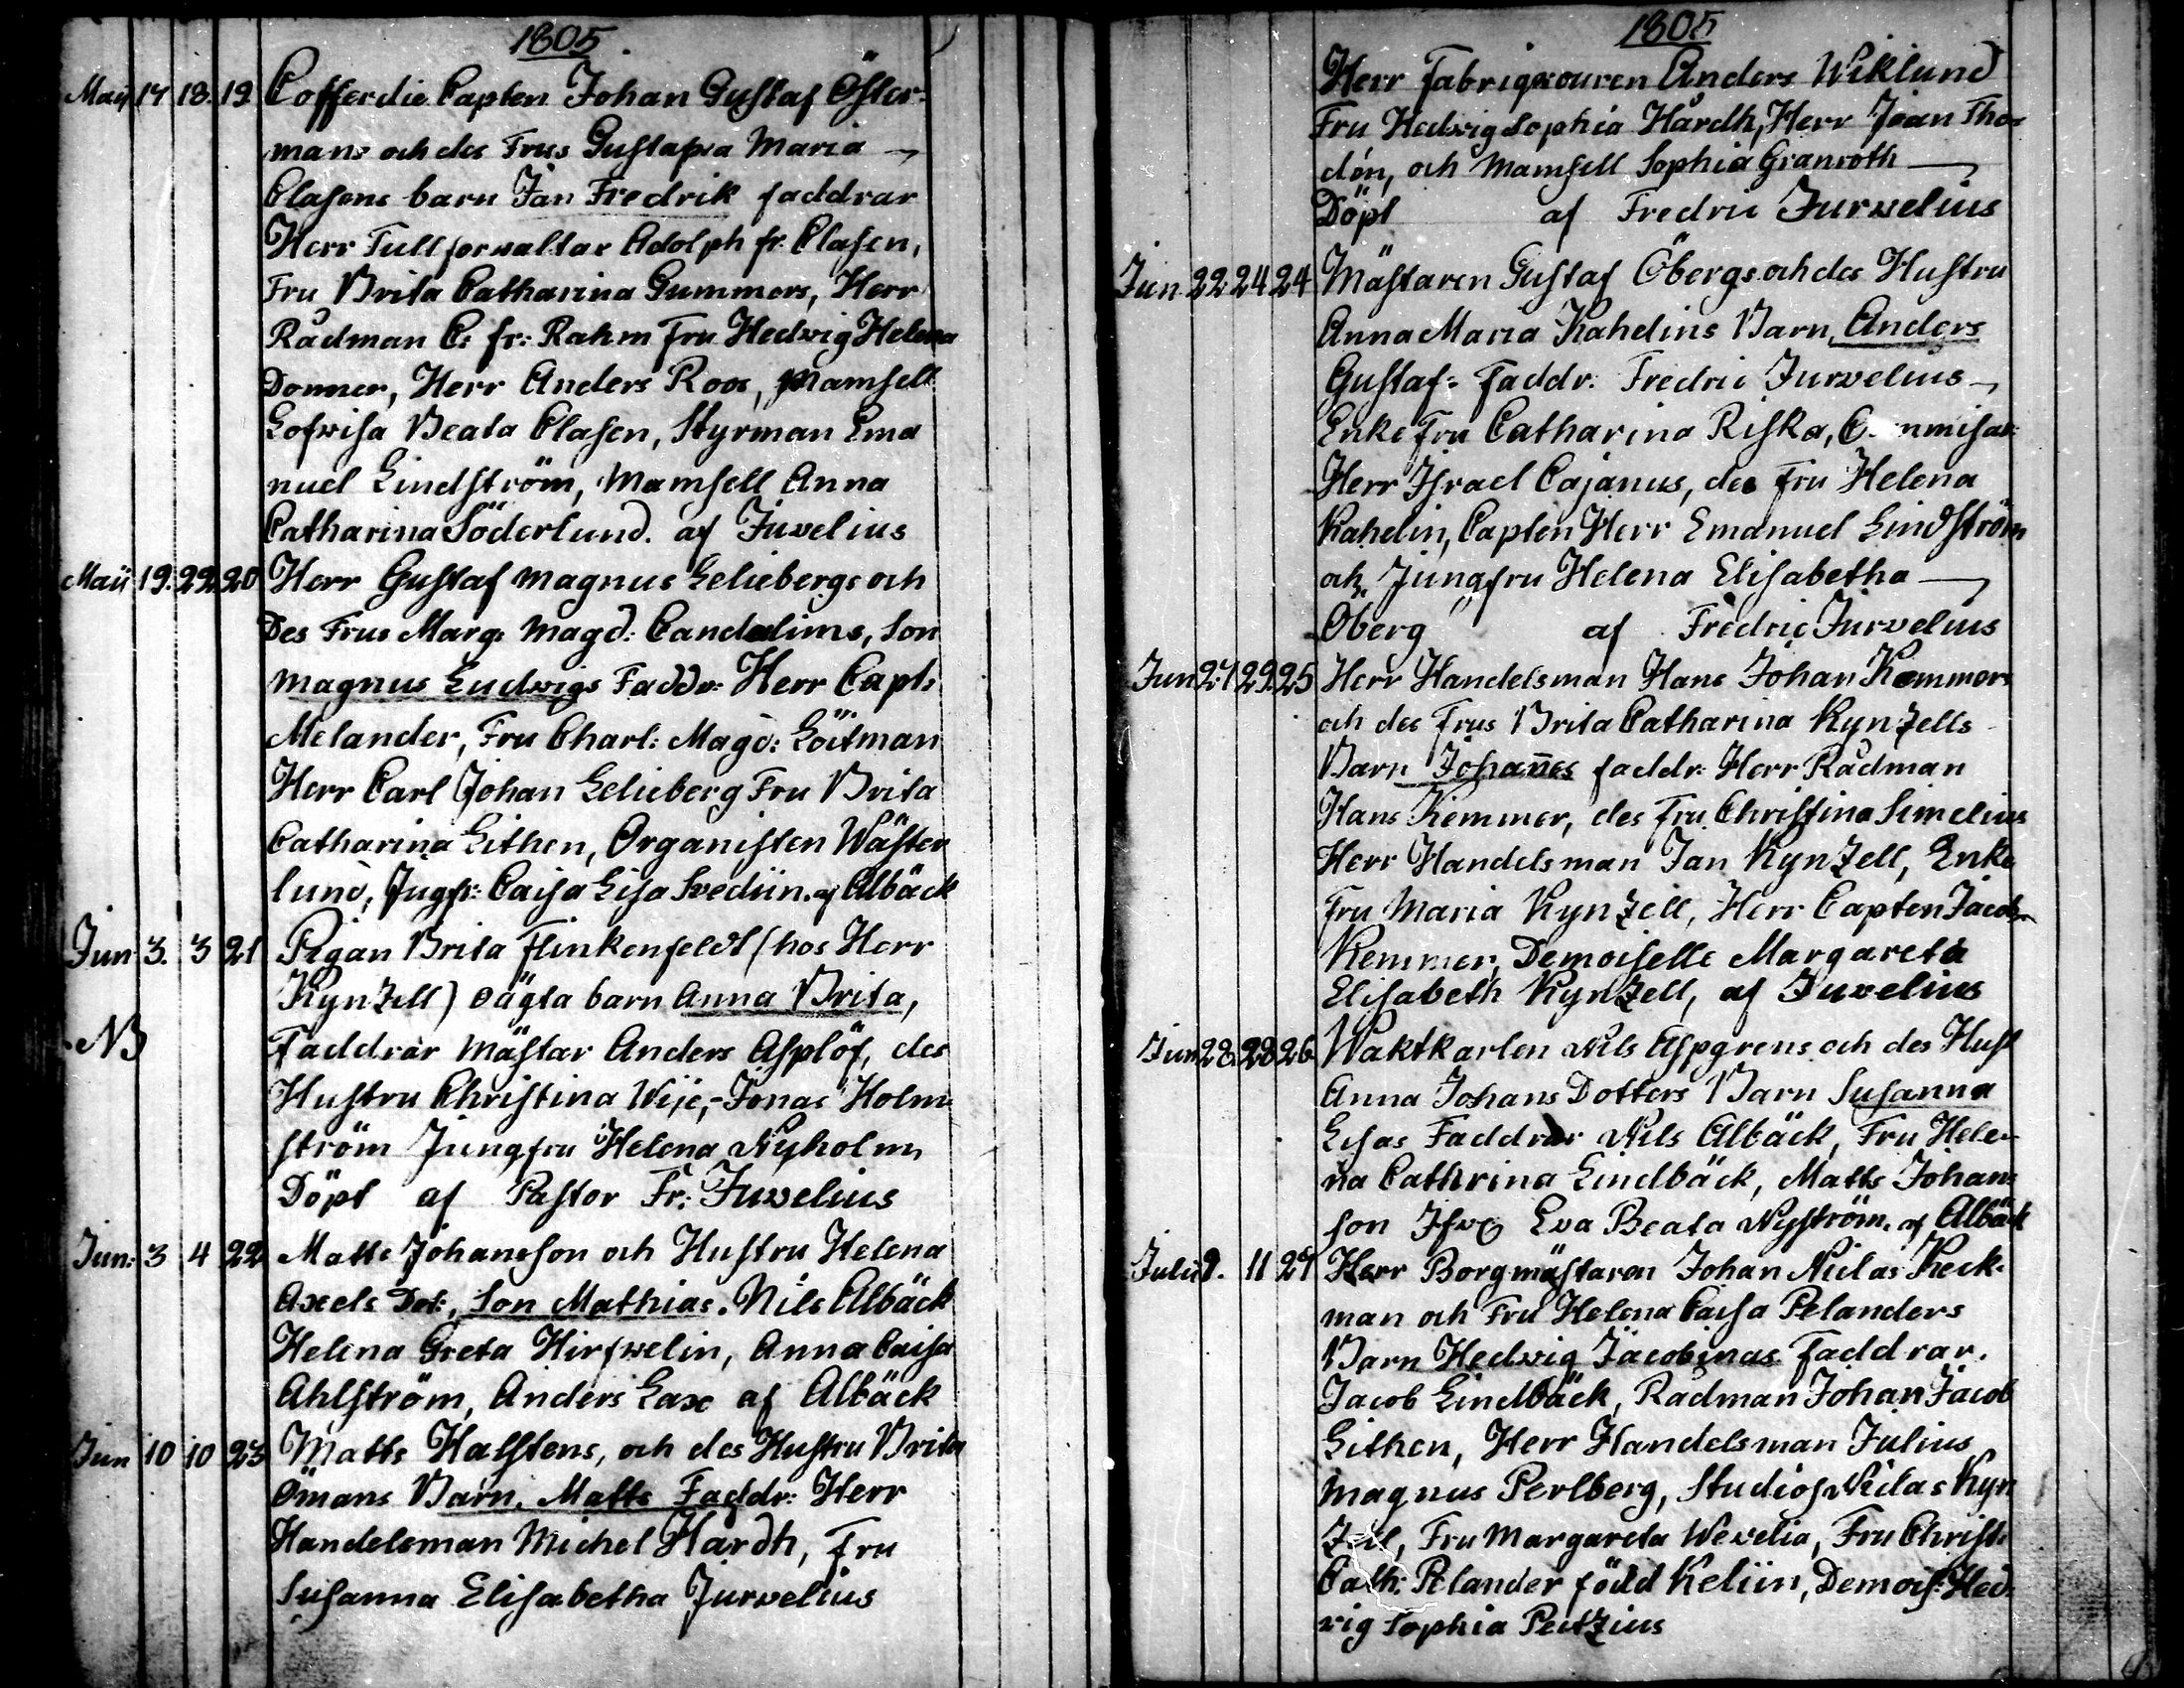 1805
May 17 18. 19 Cofferdie Capten Johan Gustaf Öster-
mans och des Frus Gustafva Maria
Clasens barn Jan Fredrik faddrar
Herr Tullforvaltar Adolph fr. Clasen,
Fru Brita Catharina Gummers, Herr
Rådman C. fr: Rahm Fru Hedvig Helena
Donner, Herr Anders Roos, Mamsell
Lofvisa Beata Clasen, Styrman Ema
nuel Lindström, Mamsell Anna
Catharina Söderlund. af Juvelius
Maii 19. 22. 20 Herr Gustaf Magnus Leliebergs och
Des Frus Marg: Magd: Candelims, Son
Magnus Ludvigs Faddr: Herr Capt:
Melander, Fru Charl: Magd: Löitman
Herr Carl Johan Lelieberg Fru Brita
Catharina Lithen, Organisten Wäster
lund, Jugfr: Caisa Lisa Svediin. af Albäck
Jun 3. 3 21 Pigan Brita Flinkenfeldt (hos Herr
Kynzell) oägta barn Anna Brita,
NB Faddrar Mästar Anders Asplöf, des
Hustru Christina Wije, Jonas Holm-
ström Jungfru Helena Nyholm
Döpt af Pastor Fr: Juvelius
Jun: 3 4 22 Matts Johansson och Hustru Helena
Axels Dot:, Son Mathias. Nils Albäck
Helena Greta Hirfvelin, Anna Caisa
Ahlström, Anders Lax af Albäck
Jun 10 10 23 Matts Halstens, och des Hustru Brita
Ömans Barn. Matts Faddr: Herr
Handelsman Michel Hardh, Fru
Susanna Elisabetha Jurvelius
1805
Herr Fabriqxouren Anders Wiklund
Fru Hedvig Sophia Hårdh, Herr Joan Tho-
dén, och Mamsell Sophia Granroth
Döpt af Fredric Jurvelius
Jun 22 24 24 Mästaren Gustaf Öbergs och des Hustru
Anna Maria Kahelins Barn, Anders
Gustaf: Faddr: Fredric Jurvelius
Enke Fru Catharina Riska,
Herr Israel Cajanus, des Fru Helena
Kahelin, Capten Herr Emanuel Lindström
och Jungfru Helena Elisabetha
Öberg af Fredric Jurvelius
Jun 27 29 25 Herr Handelsman Hans Johan Kemmers
och des Frus Brita Catharina Kynzells
Barn Johan̄es faddr: Herr Rådman
Hans Kemmer, des Fru Christina Simelius
Herr Handelsman Jan Kynzell, Enke
Fru Maria Kynzell, Herr Capten Jacob
Kemmer, Demoiselle Margareta
Elisabeth Kynzell, af Juvelius
Jun 28 28 26 Waktkarlen Nils Aspgrens och des Hust
Anna Johans Dotters Barn Susanna
Lisas Faddrar Nils Albäck, Fru Hele-
na Cathrina Lindbäck, Matts Johans
son Jfru Eva Beata Nyström. af Albäck
Julii 9. 11 27 Herr Borgmästaren Johan Niclas Keck-
man och Fru Helena Caisa Pelanders
Barn Hedvig Jacobinas Faddrar.
Jacob Lindbäck, Rådman Johan Jacob
Lithen, Herr Handelsman Julius
Magnus Perlberg, Studios Niklas Kyn
zell, Fru Margareta Wevelia, Fru Christ:
Cath: Pelander född Keliin, Demois: Hed-
vig Sophia Peitzius